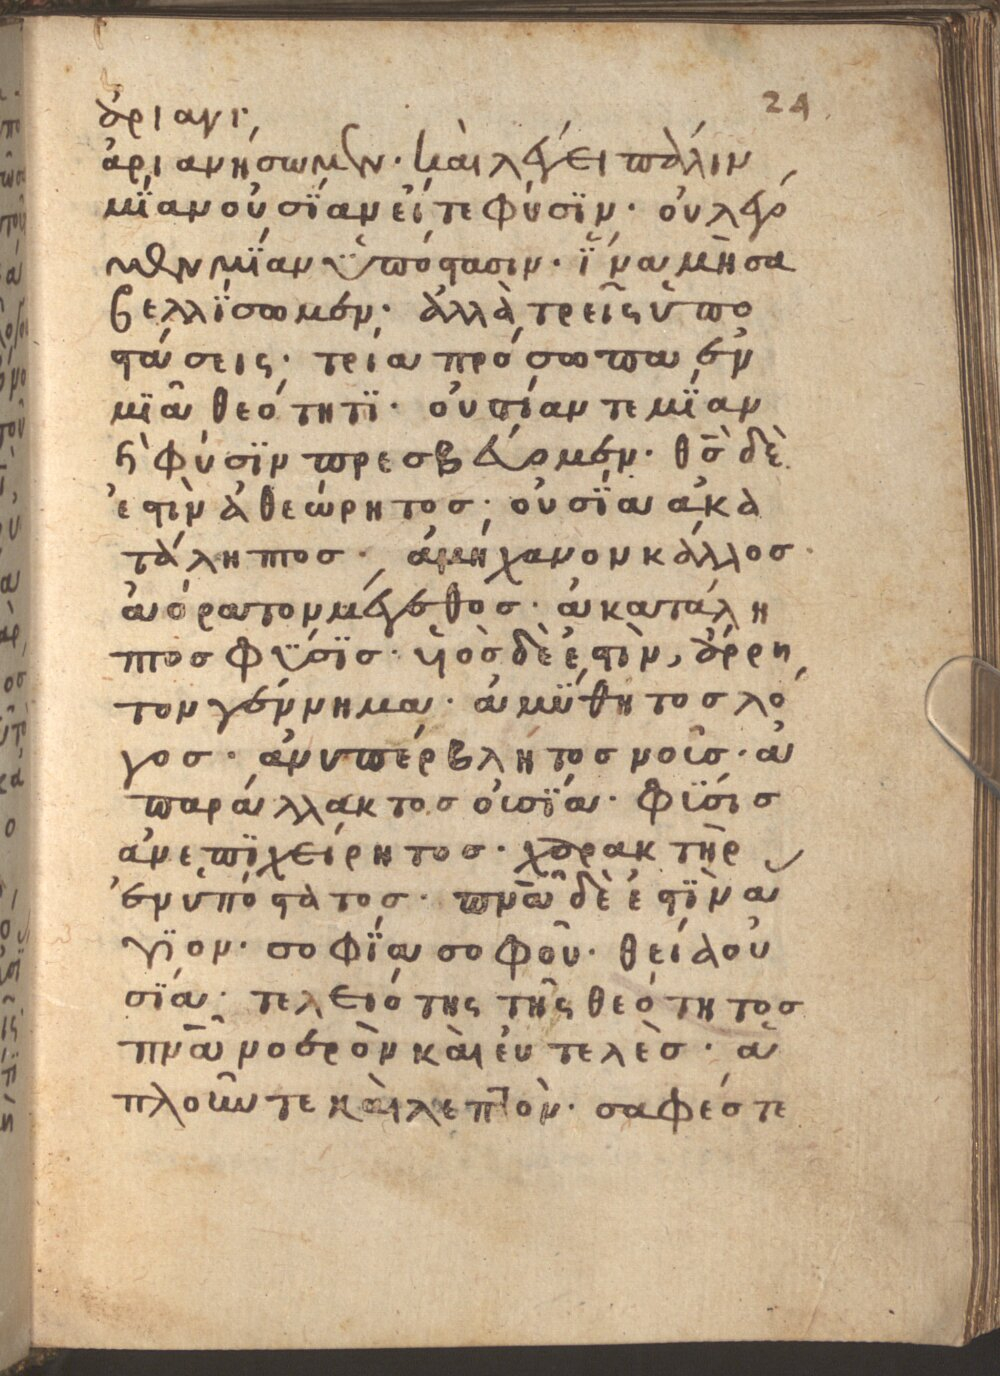 24
ἀριανι,
ἀριανήσωμεν· καὶ λέγει πάλιν
μΐαν οὐσΐαν εἴτε φύσϊν· οὐ λέγο
μεν μΐαν ὑπόστασιν· ἵνα μὴ σα
βελλΐσωμεν· ἀλλὰ τρεῖς ὑπο
στάσεις· τρία πρόσωπα ἐν
μϊᾶ θεότητϊ· οὐσίαν τε μΐαν
ἢ φύσϊν πρεσβεύομεν· θς̄ δὲ
ἐστὶν ἀθεώρητοσ· οὐσΐα ἀκα
τάληπτοσ· ἀμήχανον κάλλοσ·
ἀόρατον μέγεθοσ· ἀκατάλη
πτοσ φΰσϊσ· ὑὸσ δὲ ἐστὶν, ἄρρη
τον γέννημα· ἀμΰθητοσ λό
γοσ· ἀνυπέρβλητοσ νοῦσ· ἀ
παράλλακτοσ οὐσΐα· φΐσισ
ἀνεπϊχείρητοσ· χαρακτὴρ
ἐνϋπόστατοσ· πνᾶ δὲ ἐστῒν ἅ
γϊον· σοφΐα σοφοῦ· θεία οὐ
σΐα· τελειότης τῆς θεότητοσ
πνᾶ νοερὸν καὶ εὐτελὲσ· ἁ
πλοῦν τε καὶ λεπτὸν· σαφές τε